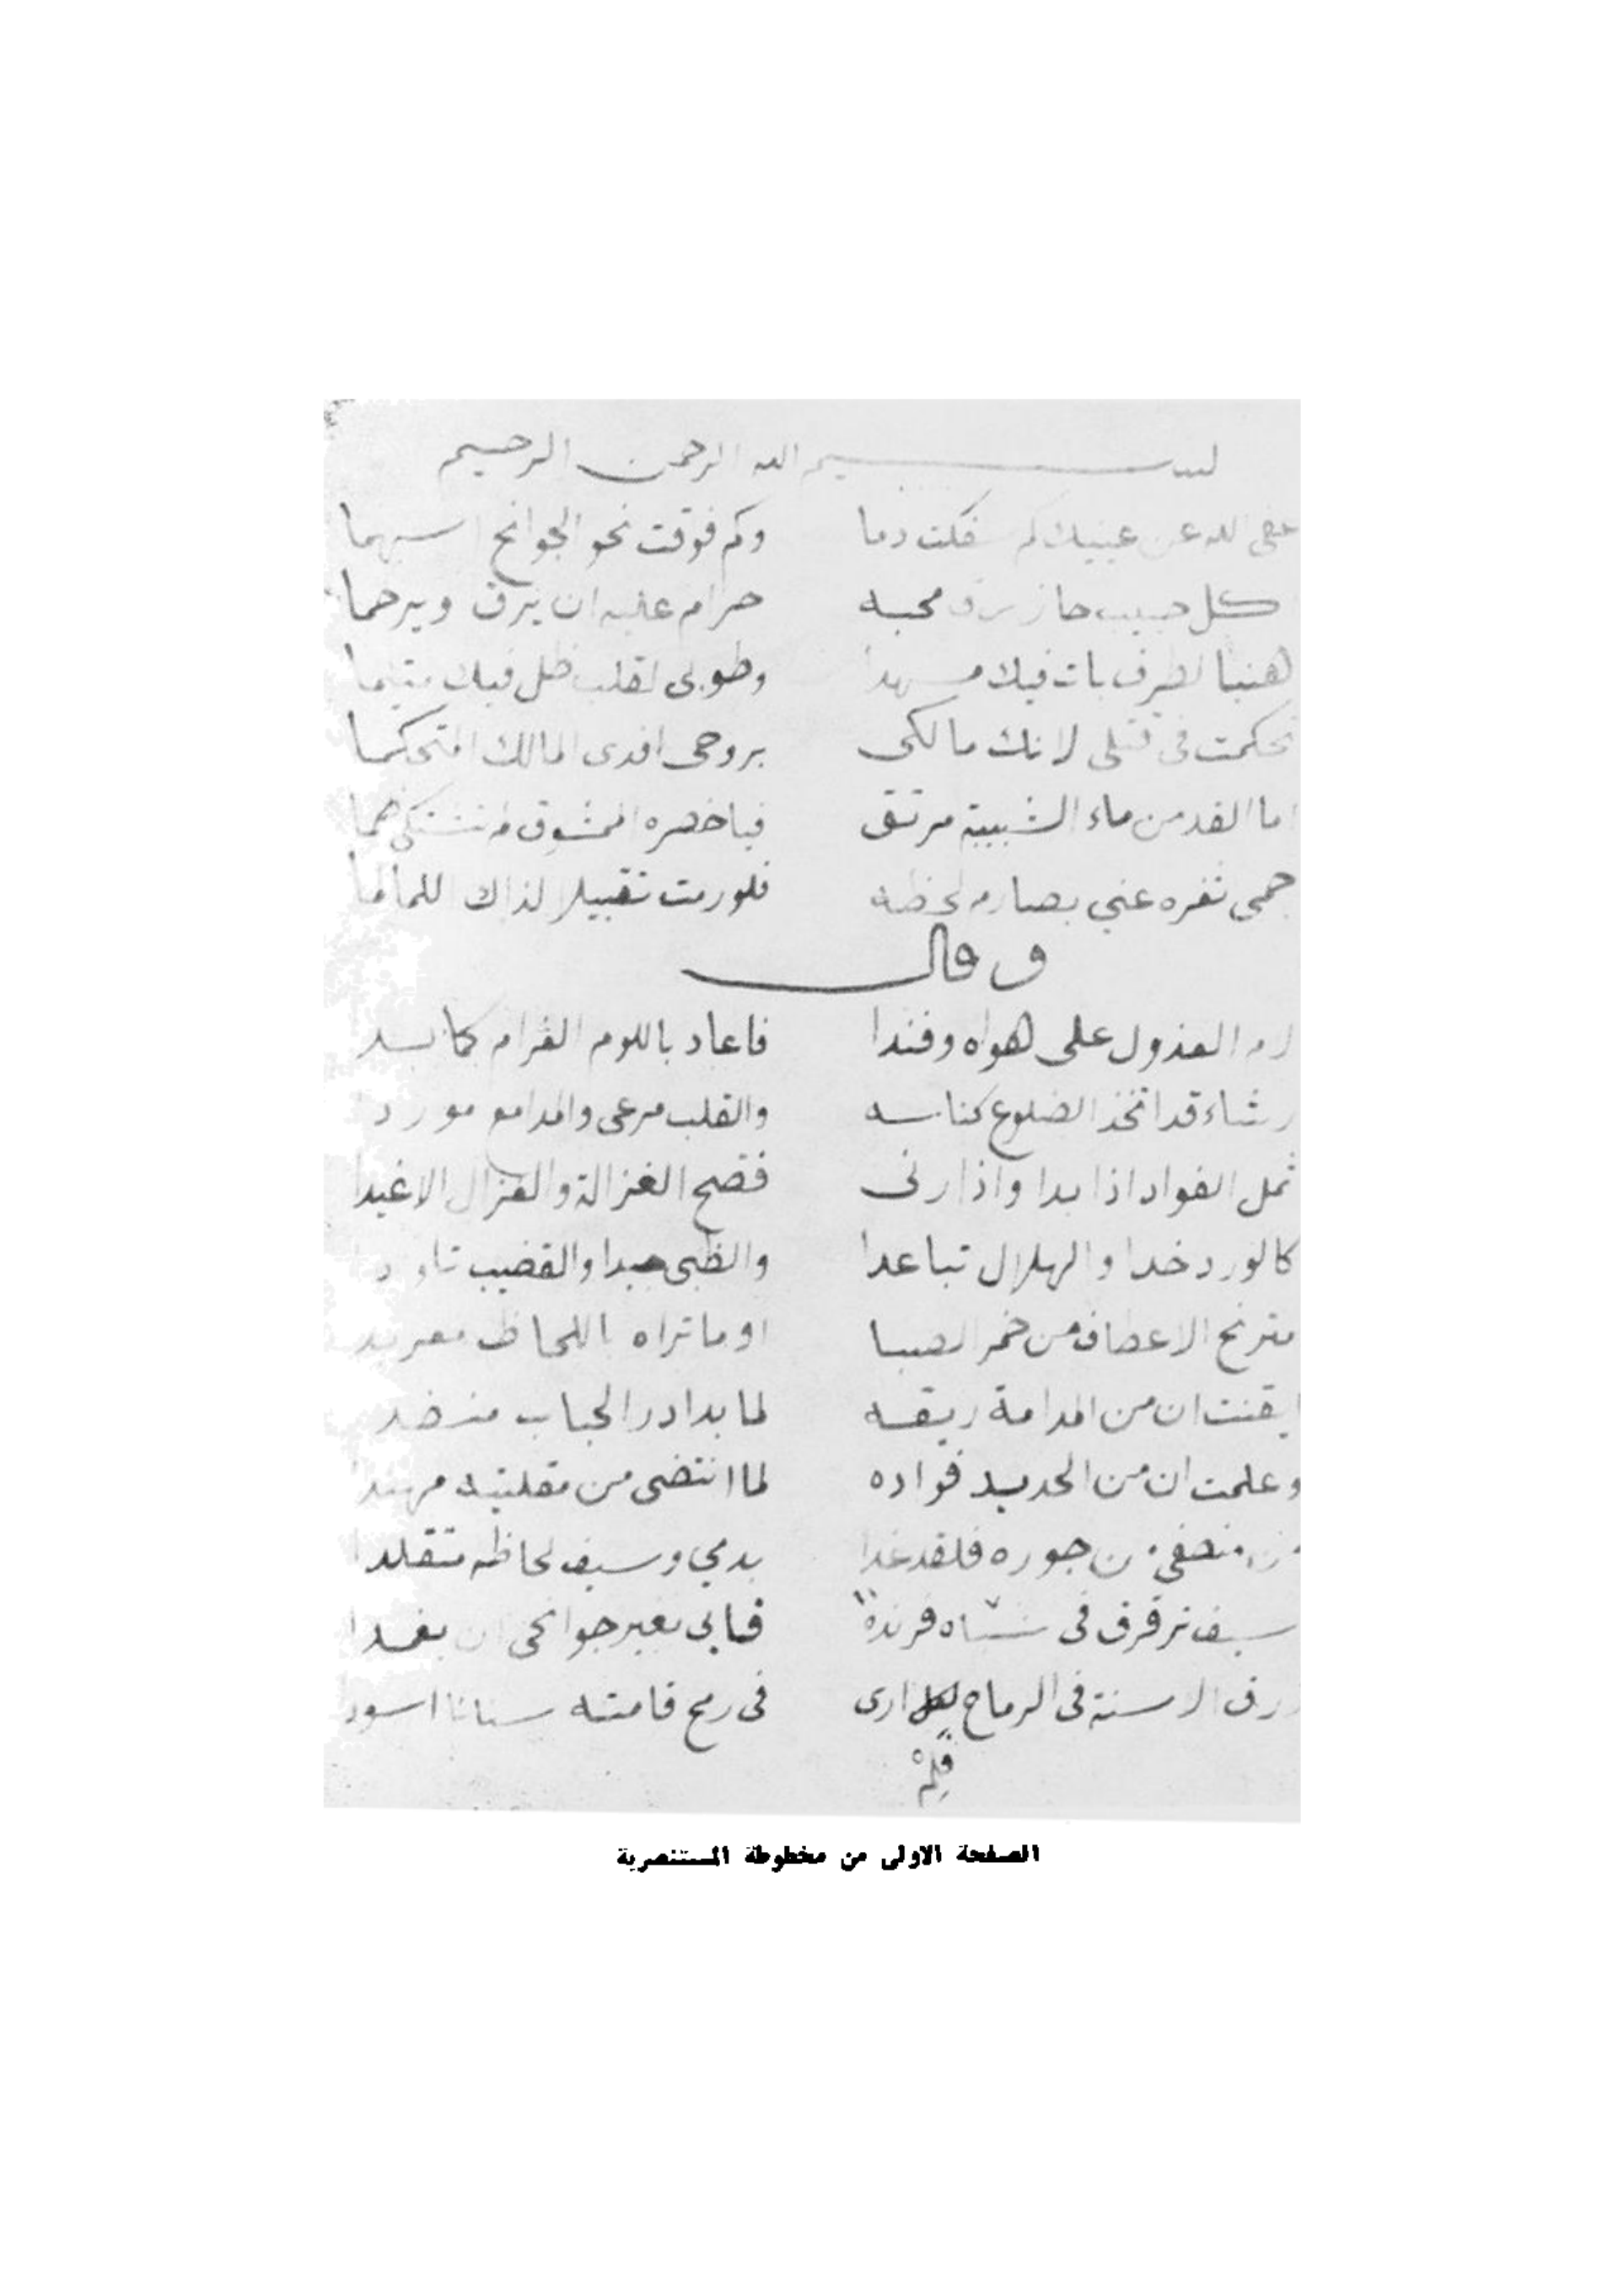 بسم الله الرحمن الرحيم
عفى الله عن عينيك كم سفكت دما وكم فوقت نحو الجوانح اسهما
كل حبيب حاز رق محبه حرام عليه ان يرق ويرحما
هنيا لطرف بات فيك مسهدا وطوبى لقلب ظل فيك متيما
تحكمت فى قتلى لانك مالكى بروحى افدى المالك المتحكما
اما القد من ماء الشبيبة مرتق فيا خصره الممشوق لم تشتكى ظما
حمى ثغره عني بصارم لحظه فلو رمت تقبيلا لذاك اللما لما
وقال
لام العذول على هواه وفندا فاعاد باللوم الغرام كما بدا
رشاء قد اتخذ الضلوع كناسه والقلب مرعى والمدامع موردا
ثمل الفواد اذا بدا واذا رنى فضح الغزالة والغزال الاغيدا
كالورد خدا والهلال تباعدا والظبى جيدا والقضيب تاودا
مترنح الاعطاف من خمر الصبا او ما تراه باللحاظ معربدا
ايقنت ان من المدامة ريقه لما بدا در الحباب منضدا
وعلمت ان من الحديد فواده لما انتضى من مقلتيه مهندا
من منصفي من جوره فلقد غدا بدمي وسيف لحاظه متقلدا
سيف ترقرق فى شباه فرنده فيابى بغير جوانحى ان يغمدا
زرق الاسنة فى الرماح ارى فى رمح قامته سنانا اسودا
فلم
الصفحة الاولى من مخطوطة المستنصرية